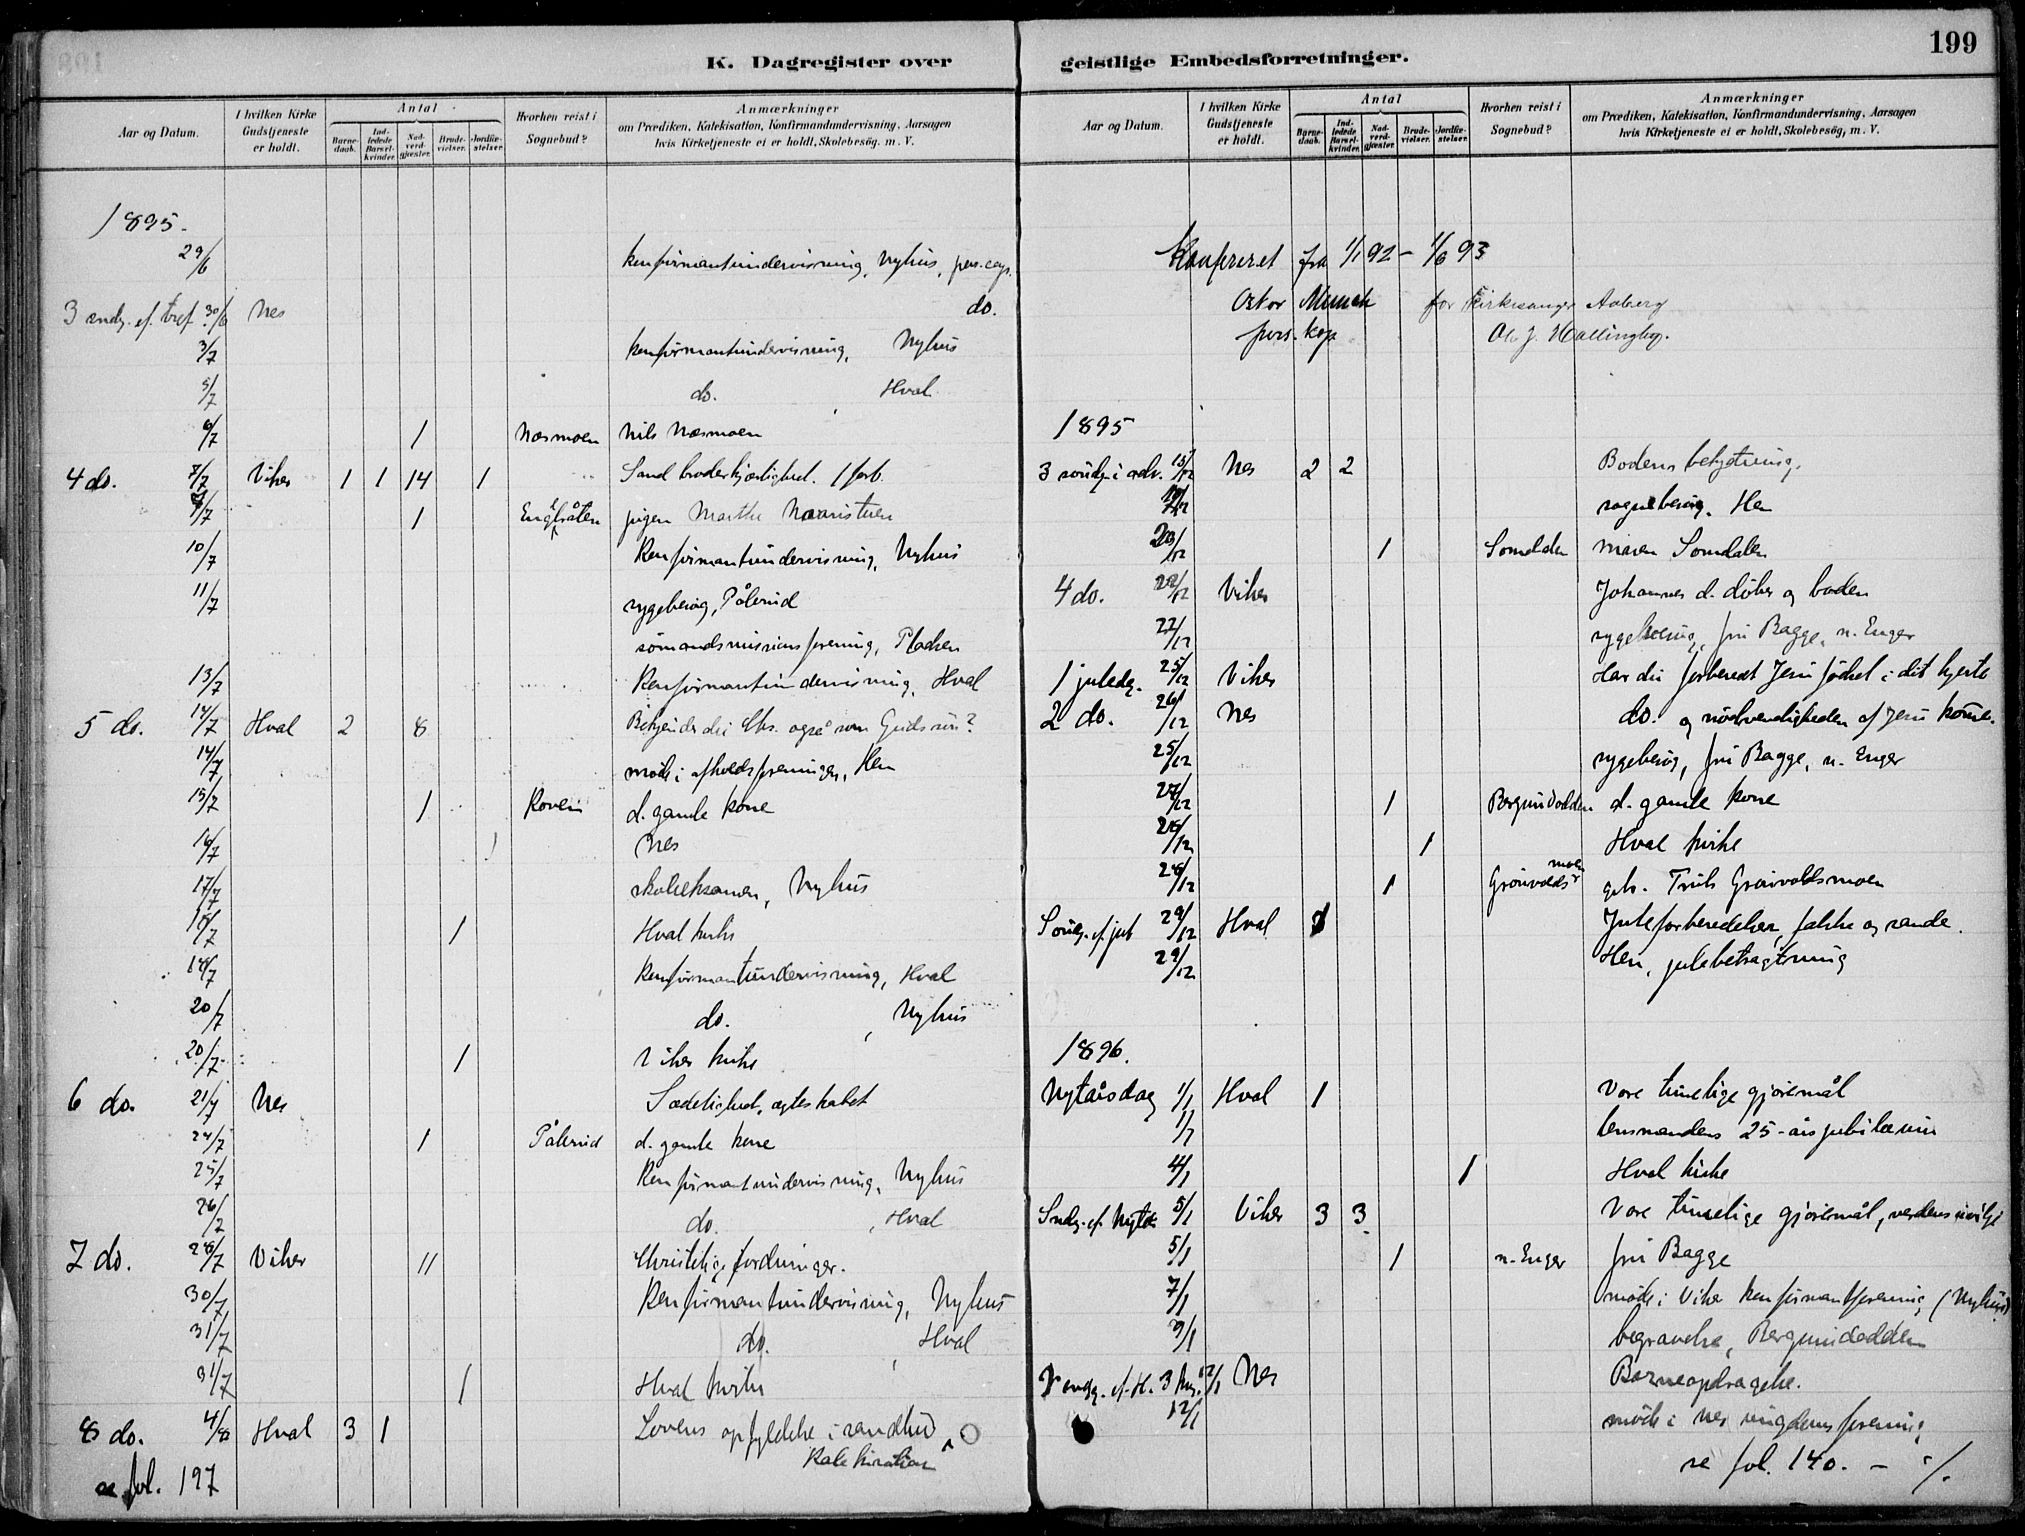 199
K. Dagregister over
Aar og Datum.
I hvilken Kirke Gudstjeneste er holdt.
Antal
Barnedaab.
Indledede Barselkvinder.
Nadverdgjæster.
Brudevielser.
Jordfæstelser.
Hvorhen reist i Sognebud?
Anmærkninger
om Prædiken, Katekisation, Konfirmandundervisning, Aarsagen
hvis Kirketjeneste ei er holdt, Skolebesøg. m. V.
1895.
29/6 konfirmantundervisning, Nyhus, pers. cap.
3 søndg. ef. tref. 30/6 Nes do.
3/7 konfirmantundervisning, Nyhus
5/7 do. Hval
6/7 1 Næsmoen Nils Næsmoen
4 do. 7/7 Viker 1 1 14 1 Sand broderkjærlighed. 1 forb.
7/7 1 pigen Marthe
10/7 Konfirmantundervisning, Nyhus
11/7 sygebesøg, Pålerud
sømandsmissionsforening, Pladsen
13/7 Konfirmantundervisning, Hval
5 do. 14/7 Hval 2 8 Bekjender du Chr. også som Guds søn?
14/7 møde i afholdsforeningen, Hen
15/7 1 d. gamle kone
16/7 1 Nes
17/7 skoleeksamen, Nyhus
18/7 1 Hval kirke
18/7 Konfirmantundervisning, Hval
20/7 do. , Nyhus
20/7 1 Viker kirke
6 do. 21/7 Nes Sædelighed, egteskabet
24/7 1 Pålerud d. gamle kone
25/7 Konfirmantundervisning, Nyhus
26/7 do. , Hval
7 do. 28/7 Viker 11 Christelige fordringer.
30/7 Konfirmantundervisning, Nyhus
31/7 do. , Hval
31/7 1 Hval kirke
8 do. 4/8 Hval 3 1 Lovens opfyldelse i sandhed
Katekisation
se fol. 197
geistlige Embedsforretninger.
Aar og Datum.
I hvilken Kirke Gudstjeneste er holdt.
Antal
Barnedaab.
Indledede Barselkvinder.
Nadverdgjæster.
Brudevielser.
Jordfæstelser.
Hvorhen reist i Sognebud?
Anmærkninger
om Prædiken, Katekisation, Konfirmandundervisning, Aarsagen
hvis Kirketjeneste ei er holdt, Skolebesøg, m. V.
Konfereret fra 1/1 92 - 1/6 93
Oskar Munch for kirkesanger Aaberg
pers. kap Ole J. Hallingby.
1895
3 søndg. i adv. 15/12 Nes 2 2 Bodens betydning.
sognebesøg. Hen
20/12 1 Somdalen Maren Somdalen
4 do. 22/12 Viker Johannes d. døber og boden
22/12 sygebesøg, fru Bagge, n. Enger
1 juledg. 25/12 Viker Har du forberedt Jesu fødsel i dit hjerte
2 do. 26/12 Nes do. og nødvendigheden af Jesu komme.
25/12 sygebesøg, fru Bagge, n. Enger
27/12 1 Bergsundodden d. gamle kone
28/12 1 Hval kirke
28/12 1 Grønvoldsmoen gdb. Truls Grønvoldsmoen
Søndg. ef. jul 29/12 Hval Juleforberedelser, falske og sande.
29/12 Hen, julebetragtning
1896.
Nytårsdag 1/1 Hval 1 Vore timelige gjøremål
1/1 lensmandens 25-års jubilæum
4/1 1 Hval kirke
Sndg. ef. Nytår 5/1 Viker 3 3 Vore timelige gjøremål, verdens
5/1 1 n. Enger fru Bagge
7/1 møde i Viker konfirmantforening (Nyhus)
9/1 begravelse, Bergsundodden
ef. H. 3 kg. 12/1 Nes Barneopdragelse.
12/1 møde i Nes ungdomsforening
se fol. 140. - ./.